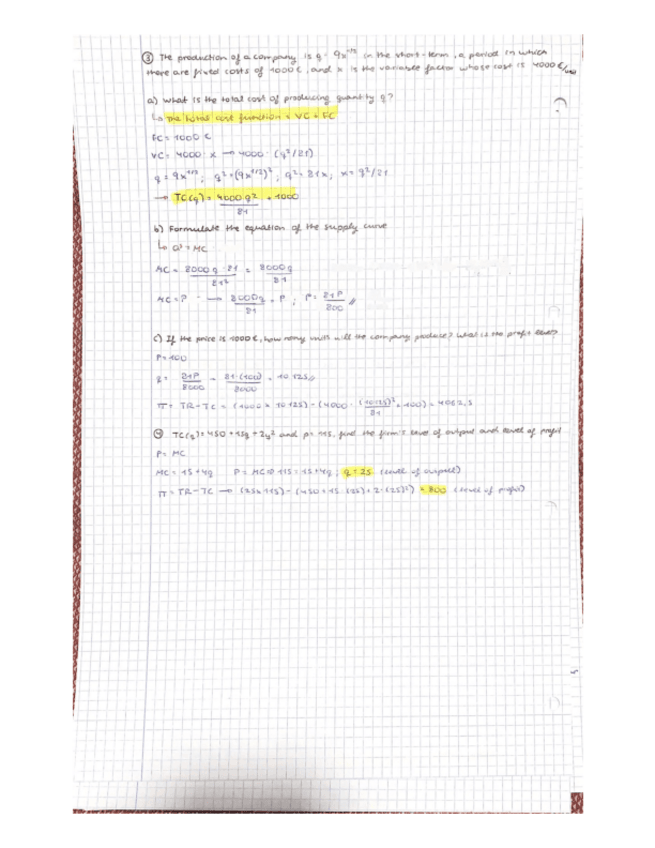 ③ The production of a company is q = 9x^1/2 in the short-term, a period in which
there are fixed costs of 1000€, and x is the variable factor whose cost is 4000€/unit
a) what is the total cost of producing quantity q?
↳ The total cost function = VC + FC
FC = 1000 €
VC = 4000 · x → 4000 · (q²/81)
q = 9x^1/2; q² = (9x^1/2)²; q² = 81x; x = q²/81
→ TC(q) = 4000q²/81 + 1000
b) Formulate the equation of the supply curve
↳ = MC
MC = 8000q · 81/81² = 8000q/81
MC = P → 8000q/81 = P; = 81P/800 //
c) If the price is 1000€, how many units will the company produce? what is the profit level?
P = 100
q = 81P/8000 = 81·(100)/8000 = 10 125 //
π = TR - TC = (1000 × 10 125) - (4000 · (10125)²/81 + 100) = 4062,5
④ TC(q) = 450 + 15q + 2q² and p = 115, find the firm's level of output and level of profit
P = MC
MC = 15 + 4q P = MC ⇒ 115 = 15 + 4q; q = 25 (level of output)
π = TR - TC → (25 × 115) - (450 + 15 · (25) + 2 · (25)²) = 800 (level of profit)